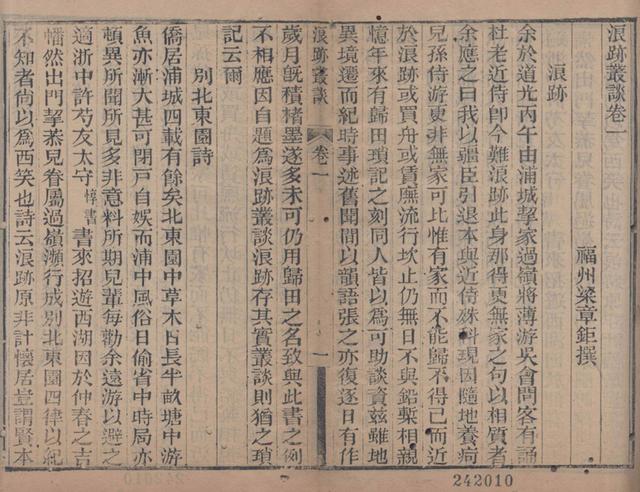 浪跡叢談卷一
福州梁章鉅撰
浪跡
余於道光丙午由浦城挈家過嶺將薄游吳會問客有誦
杜老近侍即今難浪跡此身那得更無家之句以相質者
余應之曰我以疆臣引退本與近侍殊科現因隨地養疴
兒孫侍游更非無家可比惟有家而不能歸不得已而近
於浪跡或買舟或賃廡流行坎止仍無日不與鉛槧相親
憶年來有歸田瑣記之刻同人皆以為可助談資茲雖地
異境遷而紀時事述舊聞間以韻語張之亦復逐日有作
浪跡叢談
卷一
一
歲月旣積楮墨遂多未可仍用歸田之名致與此書之例
不相應因自題為浪跡叢談浪跡存其實叢談則猶之瑣
記云爾
別北東園詩
僑居浦城四載有餘矣北東園中草木日長半畝塘中游
魚亦漸大甚可閉戸自娛而浦中風俗日偷省中時局亦
頓異所聞所見多非意料所期兒輩每勸余遠游以避之
適浙中許芍友太守惇書書來招遊西湖因於仲春之吉
幡然出門挈茶兒眷屬過嶺瀕行成別北東園四律以紀
不知者尙以為西笑也詩云浪跡原非計懷居豈謂賢本
242010